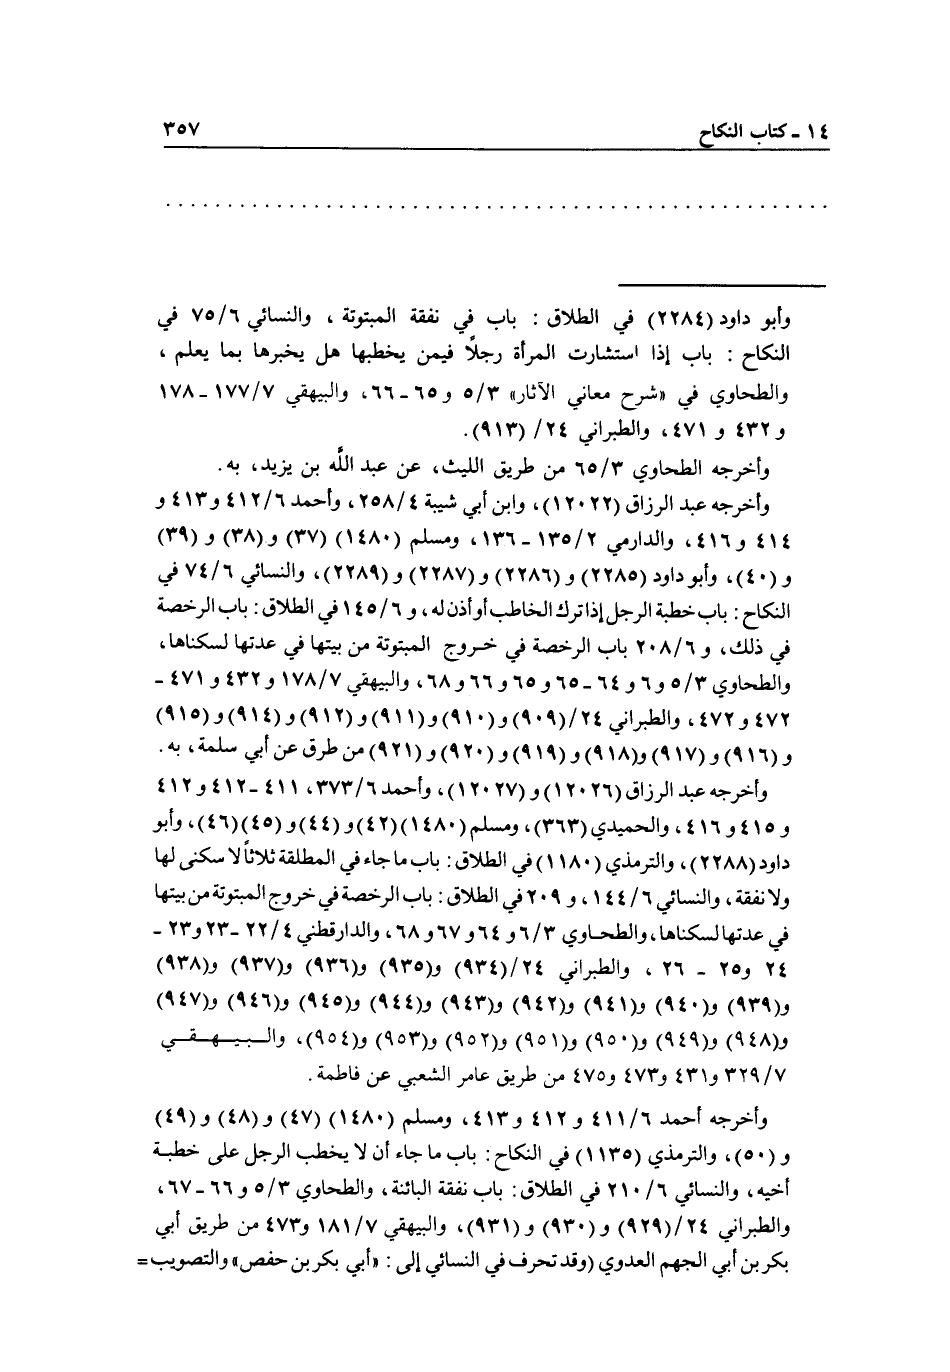 ١٤ ـ كتاب النكاح ٣٥٧
وأبو داود (٢٢٨٤) في الطلاق : باب في نفقة المبتوتة ، والنسائي ٧٥/٦ في
النكاح : باب إذا استشارت المرأة رجلاً فيمن يخطبها هل يخبرها بما يعلم ،
والطحاوي في «شرح معاني الآثار» ٥/٣ و ٦٥ ـ ٦٦، والبيهقي ١٧٧/٧ ـ ١٧٨
و ٤٣٢ و ٤٧١، والطبراني ٢٤/ (٩١٣).
وأخرجه الطحاوي ٦٥/٣ من طريق الليث، عن عبد اللَّه بن يزيد، به.
وأخرجه عبد الرزاق (١٢٠٢٢)، وابن أبي شيبة ٢٥٨/٤، وأحمد ٤١٢/٦ و٤١٣ و
٤١٤ و ٤١٦، والدارمي ١٣٥/٢ ـ ١٣٦، ومسلم (١٤٨٠) (٣٧) و (٣٨) و (٣٩)
و (٤٠)، وأبو داود (٢٢٨٥) و (٢٢٨٦) و (٢٢٨٧) و (٢٢٨٩)، والنسائي ٧٤/٦ في
النكاح : باب خطبة الرجل إذا ترك الخاطب أو أذن له، و ١٤٥/٦ في الطلاق : باب الرخصة
في ذلك، و ٢٠٨/٦ باب الرخصة في خروج المبتوتة من بيتها في عدتها لسكناها،
والطحاوي ٥/٣ و ٦ و ٦٤ ـ ٦٥ و ٦٥ و ٦٦ و ٦٨، والبيهقي ١٧٨/٧ و ٤٣٢ و ٤٧١ ـ
٤٧٢ و ٤٧٢، والطبراني ٢٤/ (٩٠٩) و (٩١٠) و (٩١١) و (٩١٢) و (٩١٤) و (٩١٥)
و (٩١٦) و (٩١٧) و(٩١٨) و (٩١٩) و (٩٢٠) و (٩٢١) من طرق عن أبي سلمة، به.
وأخرجه عبد الرزاق (١٢٠٢٦) و (١٢٠٢٧)، وأحمد ٣٧٣/٦، ٤١١ ـ ٤١٢ و ٤١٢
و ٤١٥ و ٤١٦، والحميدي (٣٦٣)، ومسلم (١٤٨٠) (٤٢) و (٤٤) و (٤٥) (٤٦)، وأبو
داود (٢٢٨٨)، والترمذي (١١٨٠) في الطلاق : باب ما جاء في المطلقة ثلاثاً لا سكنى لها
ولا نفقة، والنسائي ١٤٤/٦، و ٢٠٩ في الطلاق : باب الرخصة في خروج المبتوتة من بيتها
في عدتها لسكناها، والطحاوي ٦/٣ و ٦٤ و ٦٧ و ٦٨، والدارقطني ٢٢/٤ ـ ٢٣ و٢٣ ـ
٢٤ و٢٥ ـ ٢٦ ، والطبراني ٢٤/(٩٣٤) و(٩٣٥) و(٩٣٦) و(٩٣٧) و(٩٣٨)
و(٩٣٩) و(٩٤٠) و(٩٤١) و(٩٤٢) و(٩٤٣) و(٩٤٤) و(٩٤٥) و(٩٤٦) و(٩٤٧)
و(٩٤٨) و(٩٤٩) و(٩٥٠) و(٩٥١) و(٩٥٢) و(٩٥٣) و(٩٥٤)، والبيهقي
٣٢٩/٧ و٤٣١ و٤٧٣ و٤٧٥ من طريق عامر الشعبي عن فاطمة .
وأخرجه أحمد ٤١١/٦ و ٤١٢ و ٤١٣، ومسلم (١٤٨٠) (٤٧) و (٤٨) و (٤٩)
و (٥٠)، والترمذي (١١٣٥) في النكاح : باب ما جاء أن لا يخطب الرجل على خطبة
أخيه، والنسائي ٢١٠/٦ في الطلاق : باب نفقة البائنة، والطحاوي ٥/٣ و ٦٦ ـ ٦٧،
والطبراني ٢٤/ (٩٢٩) و (٩٣٠) و (٩٣١)، والبيهقي ١٨١/٧ و٤٧٣ من طريق أبي
بكر بن أبي الجهم العدوي (وقد تحرف في النسائي إلى : «أبي بكر بن حفص» والتصويب=